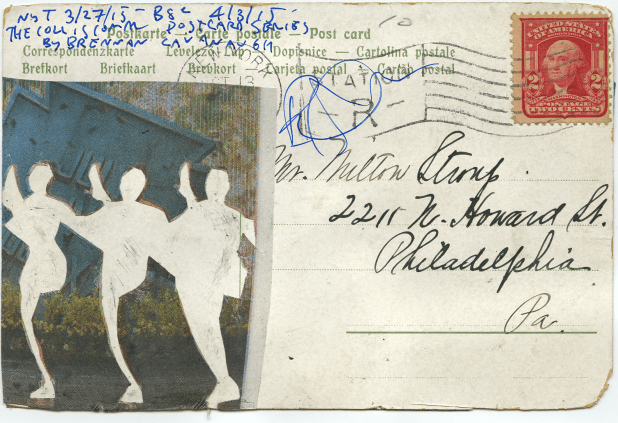 NYT 3/27/15 - BGC 4/3/15 -
THE COLLISCOMM POSTCARD SERIES
BY BRENNAN CAVANAUGH
10
Postkarte — Carte postale — Post card
Correspondenzkarte Levelező-Lap Dopisnice — Cartolina postale
Brefkort Briefkaart Brevkort Tarjeta postal — Cartão postal
UNITED STATES OF AMERICA
2 2
POSTAGE
TWO CENTS
Mr. Milton Stroup
2211 N. Howard St.
Philadelphia
Pa.